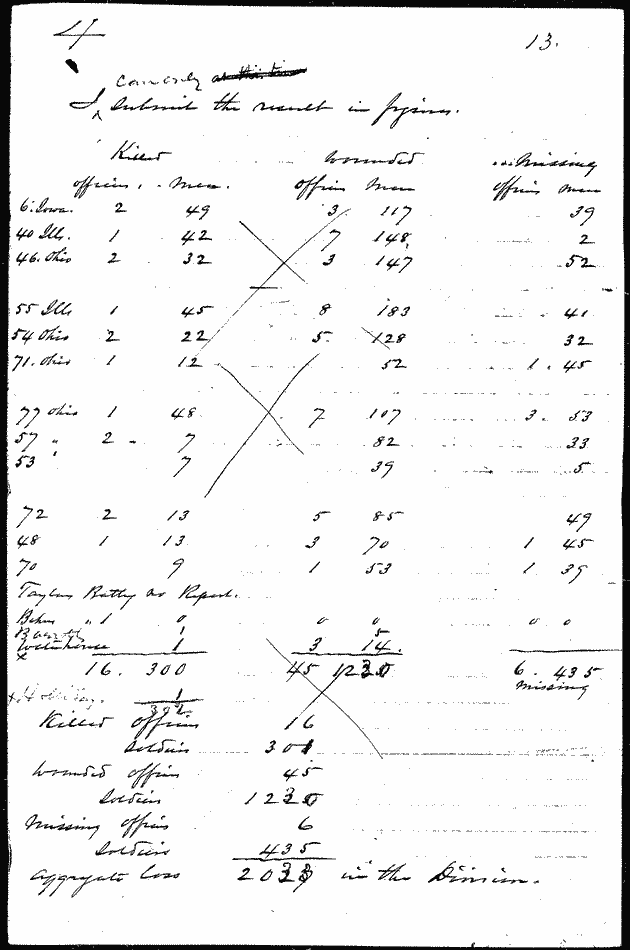 4 13.
can only at this time
I submit the result in figures.
Killed wounded missing
officers. Men. officers Men officers men
6. Iowa. 2 49 3 117 39
40 Ills. 1 42 7 148 2
46. Ohio 2 32 3 147 52
55 Ills 1 45 8 183 41
54 Ohio 2 22 5. 128 32
71. Ohio 1 12 52 1. 45
77 Ohio 1 48 7 107 3. 53
57 " 2 7 82 33
53 " 7 39 5
72 2 13 5 85 49
48 1 13 3 70 1 45
70 9 1 53 1 39
Taylors Batty no Report.
Behrs " 1 0 0 0 0 0
1 5
Waterhouse 1 3 14.
x
16. 300 45 6. 435
missing
1
Killed officers 16
Soldiers
wounded officers 45
Soldiers
Missing officers 6
Soldiers 435
aggregate loss in the Division.